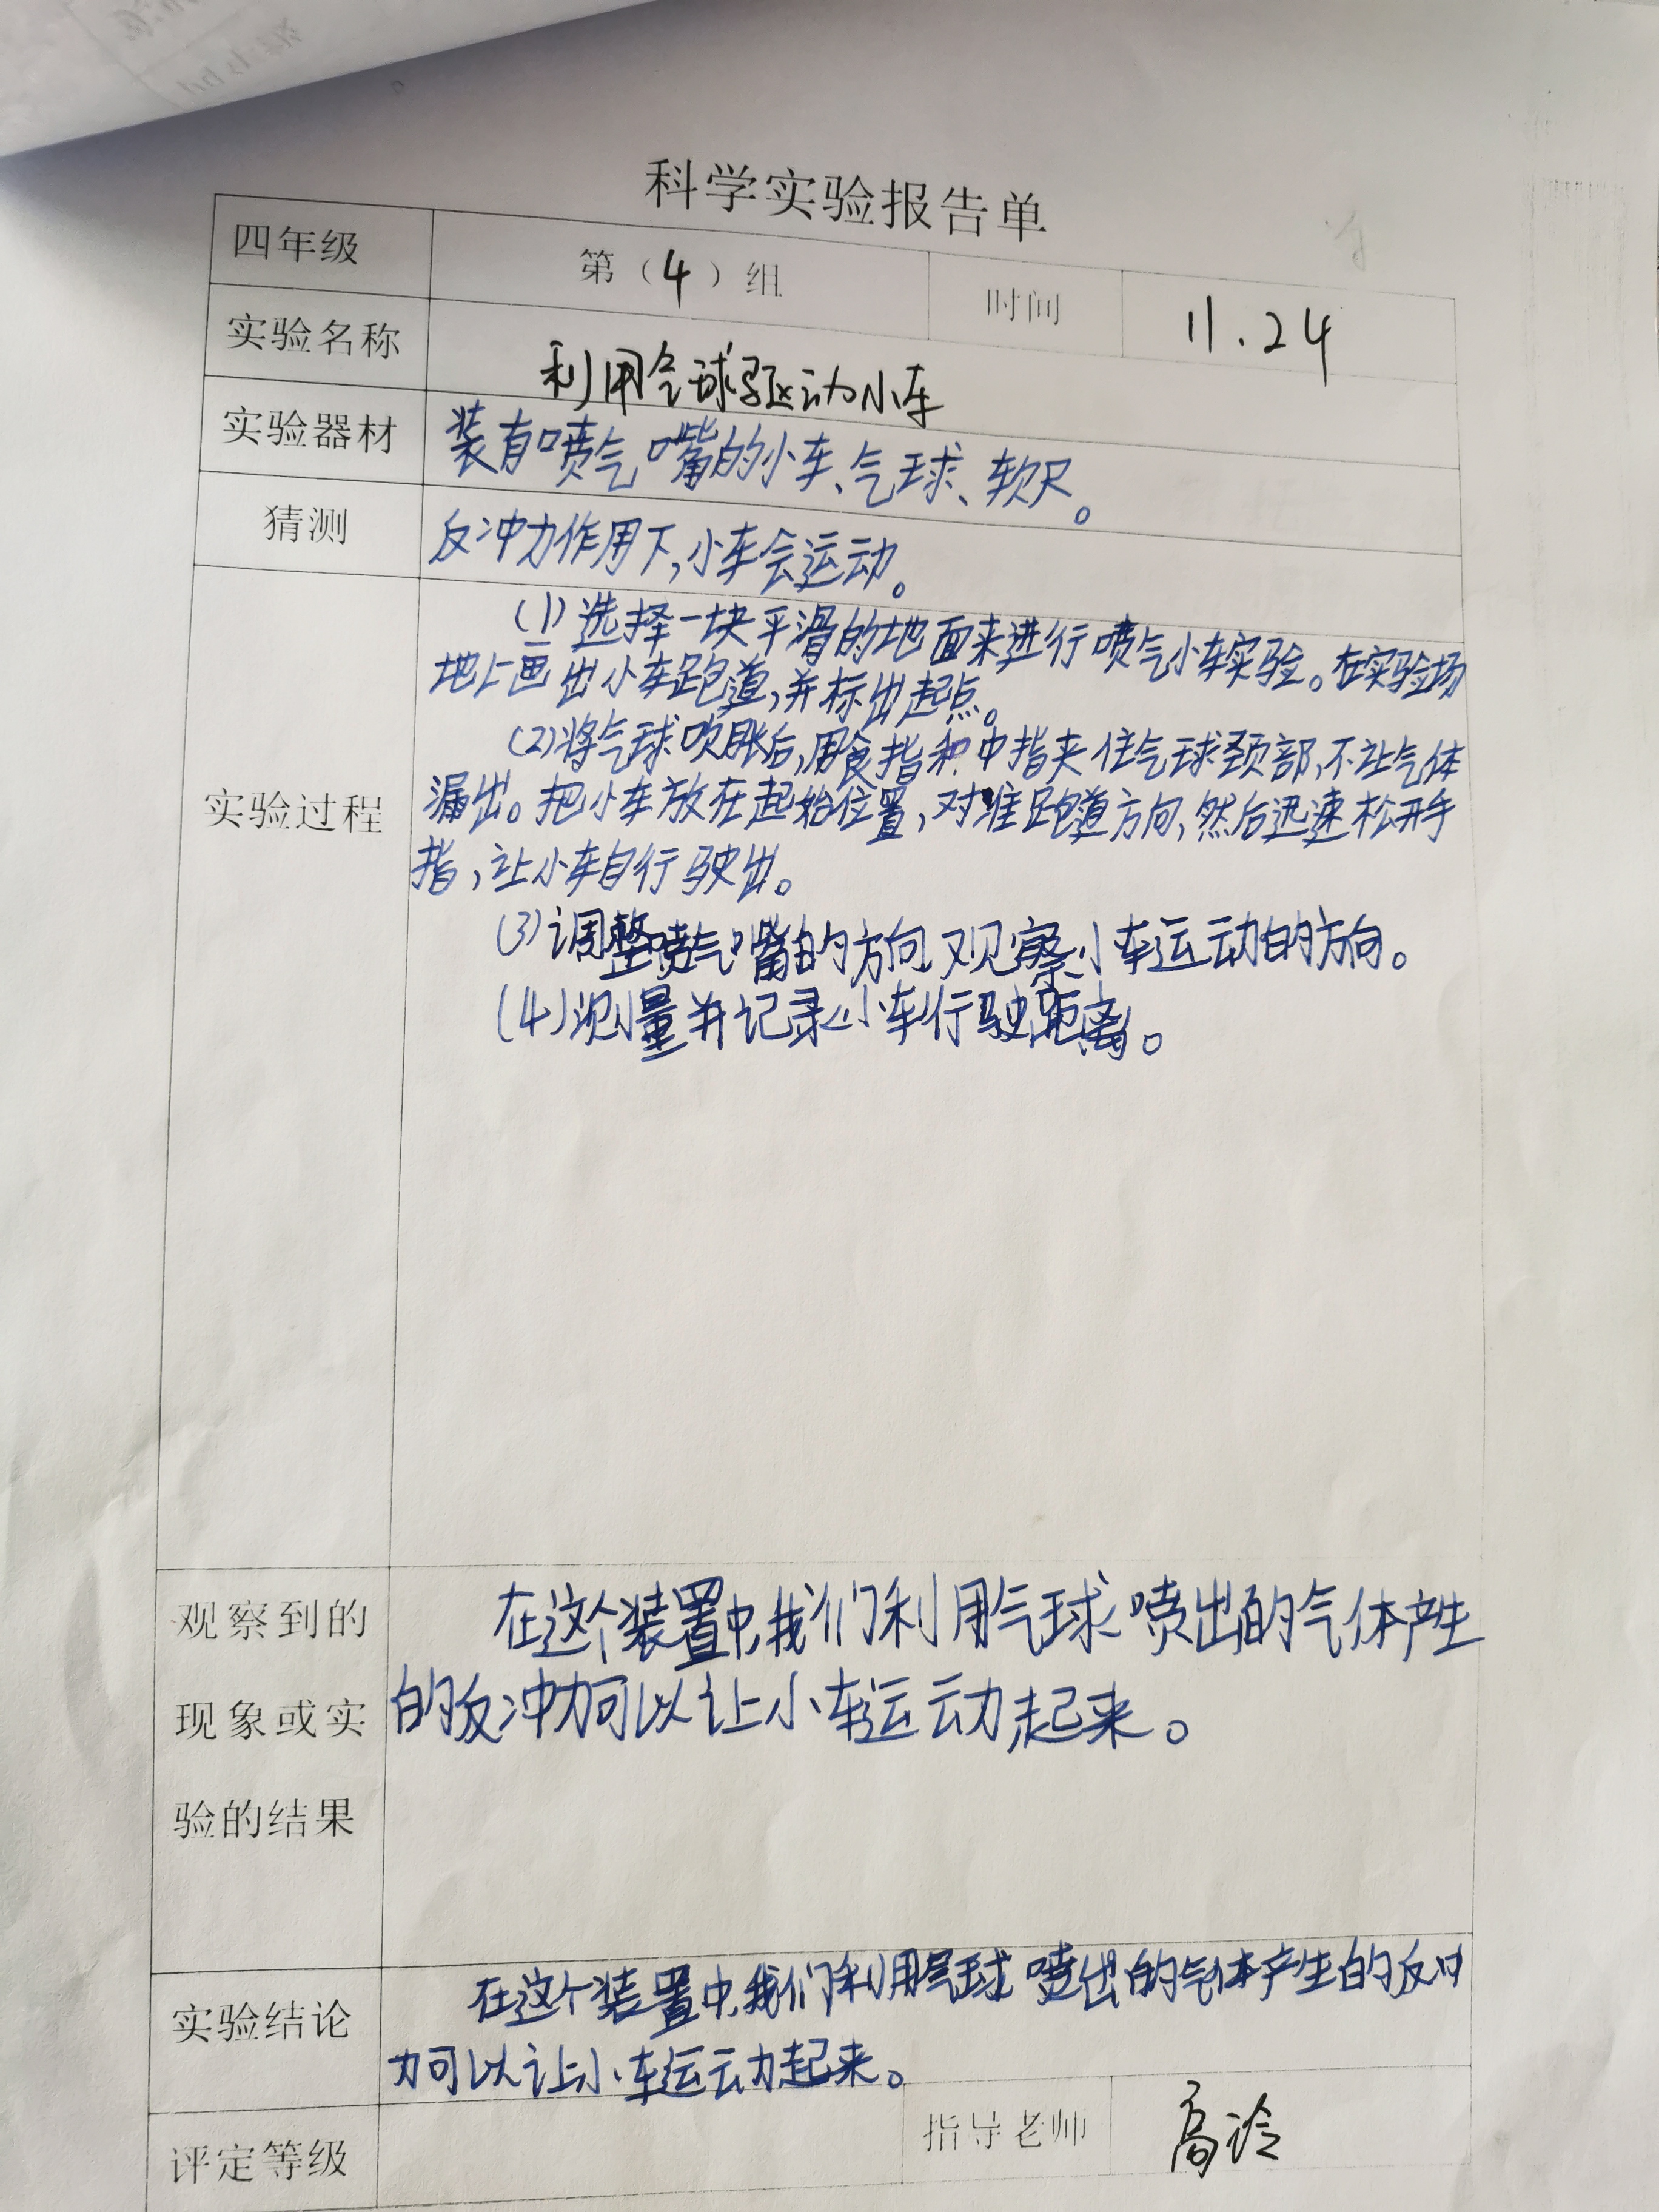 科学实验报告单
四年级 第（4）组 时间 11.24
实验名称 利用气球驱动小车
实验器材 装有喷气嘴的小车、气球、软尺。
猜测 反冲力作用下,小车会运动。
实验过程
(1)选择一块平滑的地面来进行喷气小车实验。在实验场
地上画出小车跑道,并标出起点。
(2)将气球吹胀后,用食指和中指夹住气球颈部,不让气体
漏出。把小车放在起始位置,对准跑道方向,然后迅速松开手
指,让小车自行驶出。
(3)调整喷气嘴的方向,观察小车运动的方向。
(4)测量并记录小车行驶距离。
观察到的
现象或实
验的结果
在这个装置中,我们利用气球喷出的气体产生
的反冲力可以让小车运动起来。
实验结论
在这个装置中,我们利用气球喷出的气体产生的反冲
力可以让小车运动起来。
评定等级 指导老师 高